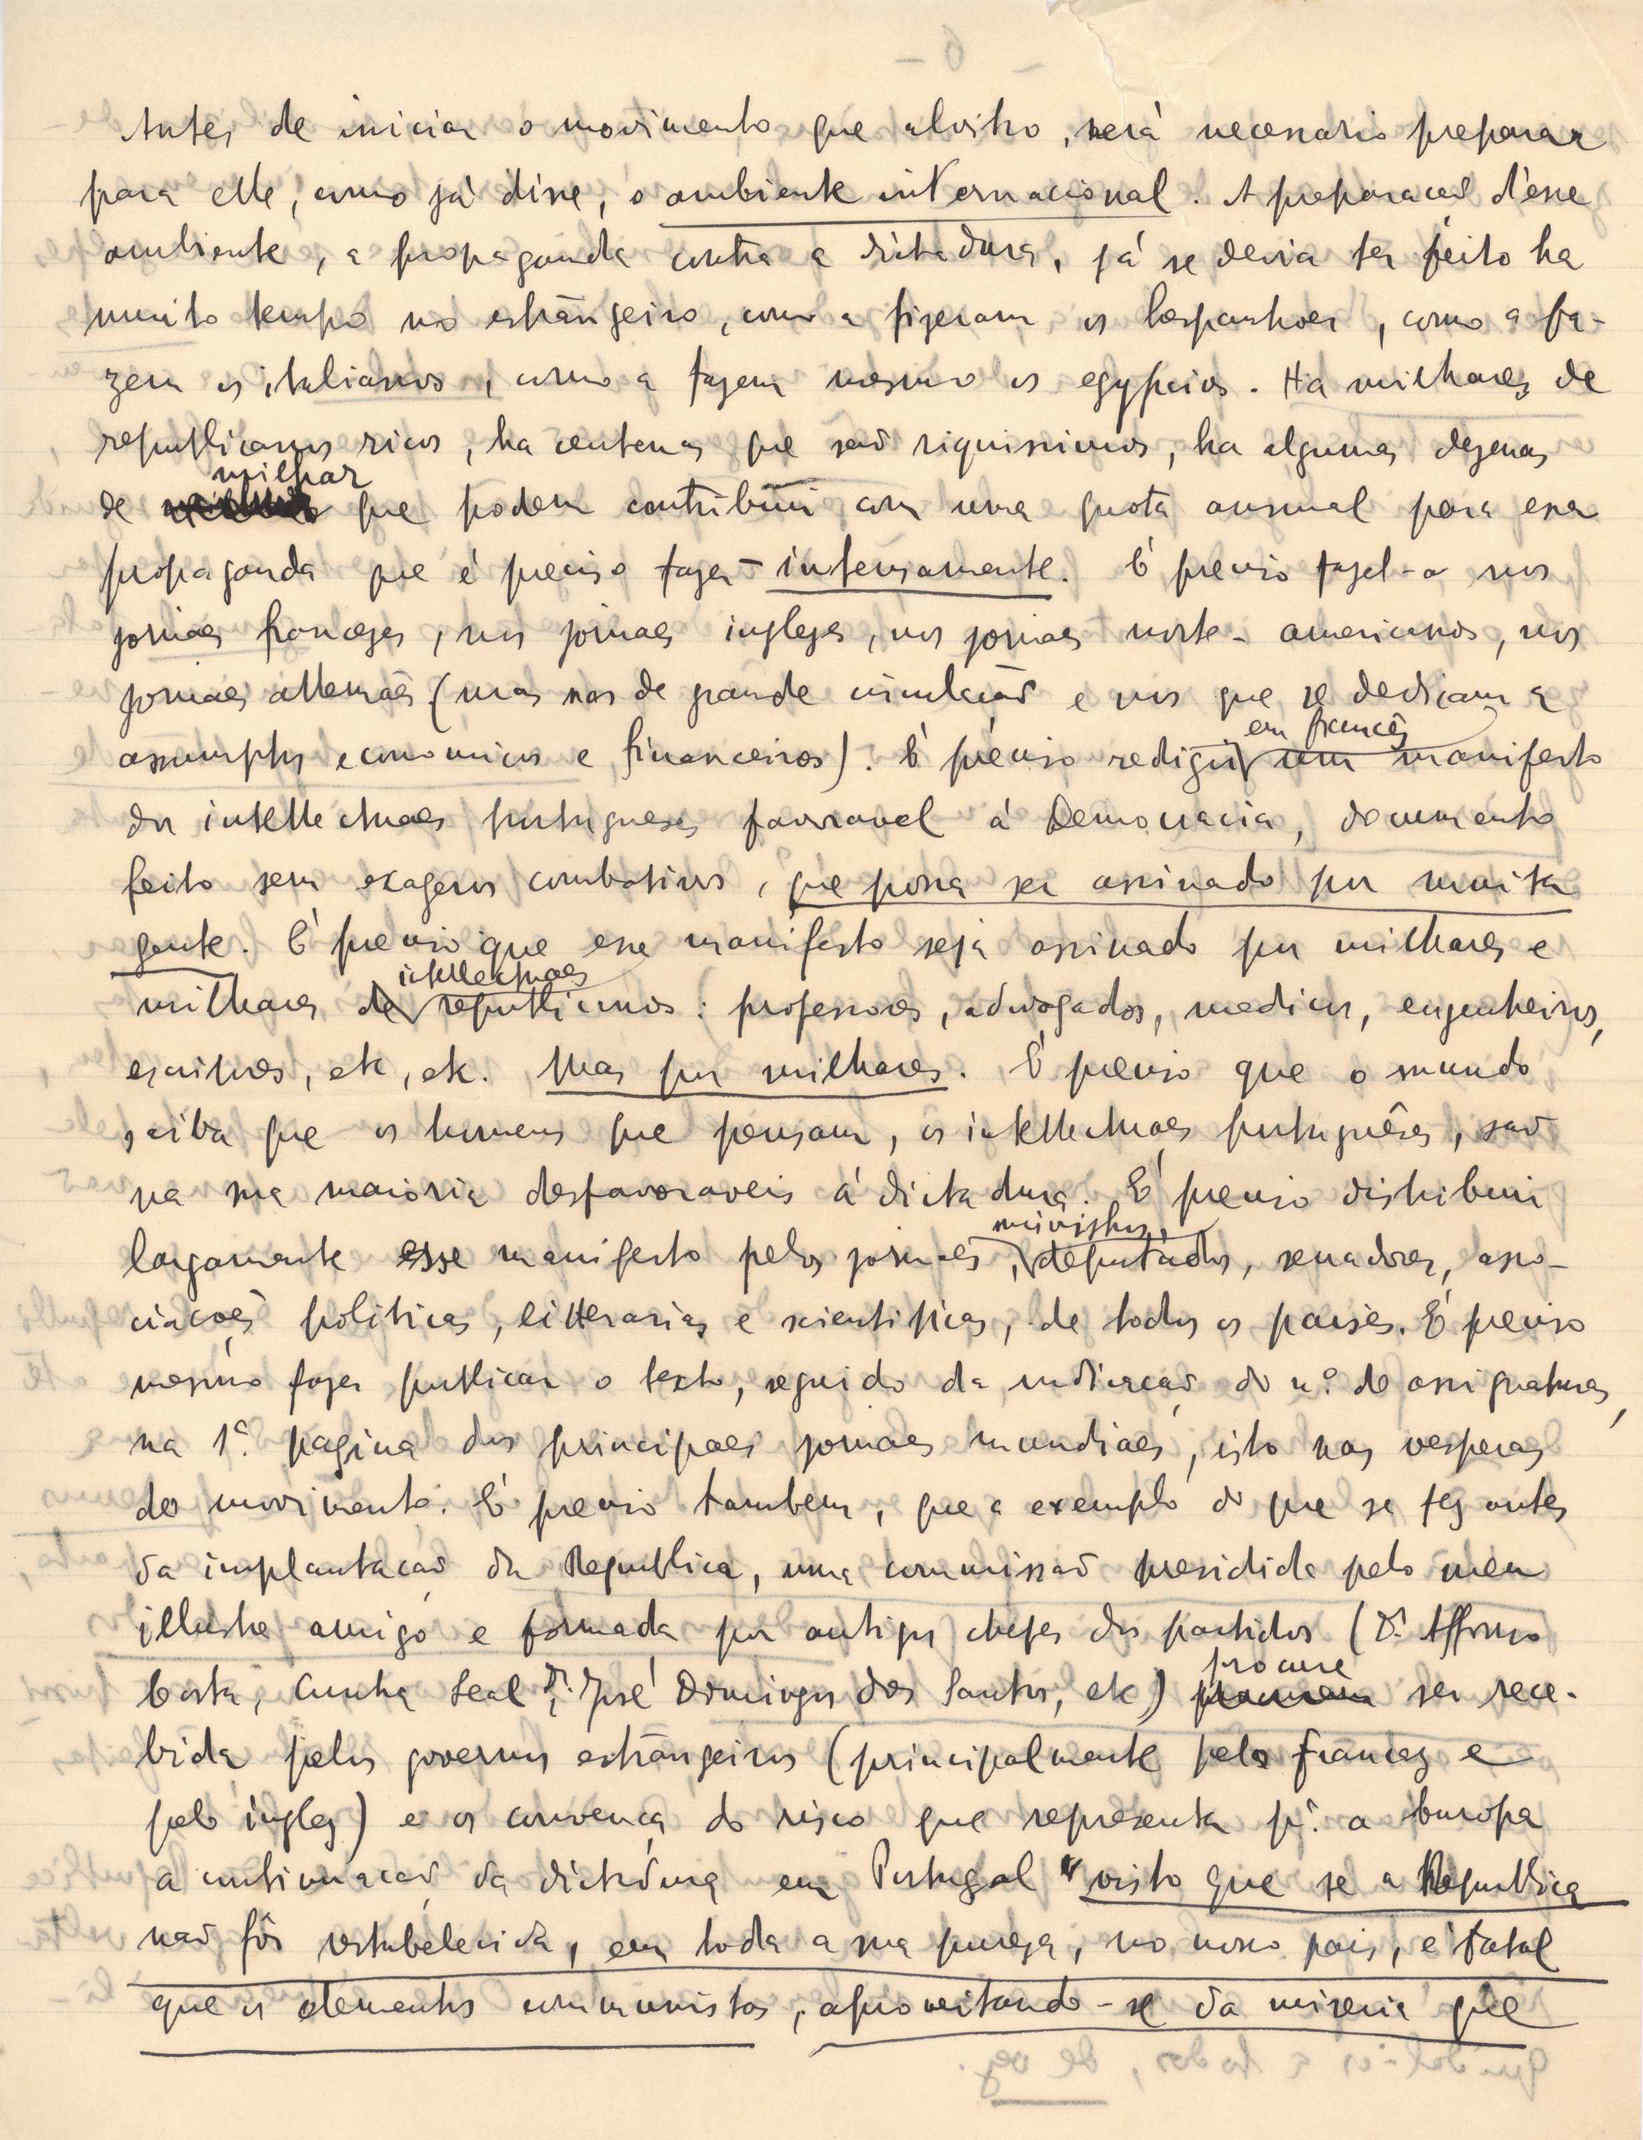 Antes de iniciar o movimento que alvitro, será necessario preparar
para elle, como já disse, o ambiente internacional. A preparação d'esse
ambiente, a propaganda contra a dictadura, já se devia ter feito ha
muito tempo no estrangeiro, como a fizeram os hespanhoes, como a fa-
zem os italianos, como a fazem mesmo os egypcios. Ha milhares de
republicanos ricos, ha centenas que são riquissimos, ha algumas dezenas
de milhar que podem contribuir com uma quota annual para essa
propaganda que é preciso fazer intensamente. É preciso fazel-a nos
jornaes francezes, nos jornaes inglezes, nos jornaes norte-americanos, nos
jornaes allemães (mas nos de grande circulação e nos que se dedicam a
assumptos economicos e financeiros). É preciso redigir em francês um manifesto
dos intellectuaes portugueses favoravel á Democracia, documento
feito sem exageros combativos, que possa ser assinado por muita
gente. É preciso que esse manifesto seja assinado por milhares e
milhares de intellectuaes republicanos: professores, advogados, medicos, engenheiros,
escritores, etc, etc. Mas por milhares. É preciso que o mundo
saiba que os homens que pensam, os intellectuaes portuguêses, são
na sua maioria desfavoraveis á dictadura. É preciso distribuir
largamente esse manifesto pelos jornaes, ministros, deputados, senadores, asso-
ciações politicas, litterarias e scientificas, de todos os paises. É preciso
mesmo fazer publicar o texto, seguido da indicação do n.º de assignaturas,
na 1ª. pagina dos principaes jornaes mundiaes, isto nas vesperas
do movimento. É preciso tambem, que a exemplo do que se fez antes
da implantação da Republica, uma commissão presidida pelo meu
illustre amigo e formada por antigos chefes dos partidos (Dr. Affonso
Costa, Cunha Leal, Dr. José Domingos dos Santos, etc) procure ser rece-
bida pelos governos estrangeiros (principalmente pelo francez e
pelo inglez) e os convença do risco que representa pª. a Europa
a continuação da dictadura em Portugal visto que se a Republica
não fôr restabelecida, em toda a sua pureza, no nosso pais, é fatal
que os elementos communistas, aproveitando-se da miseria que